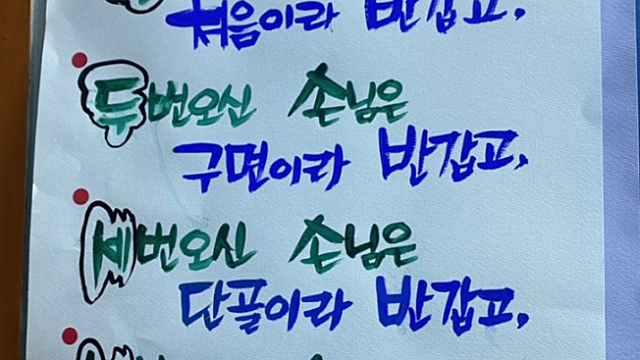 처음이라 반갑고,
두번오신 손님은
구면이라 반갑고,
세번오신 손님은
단골이라 반갑고,